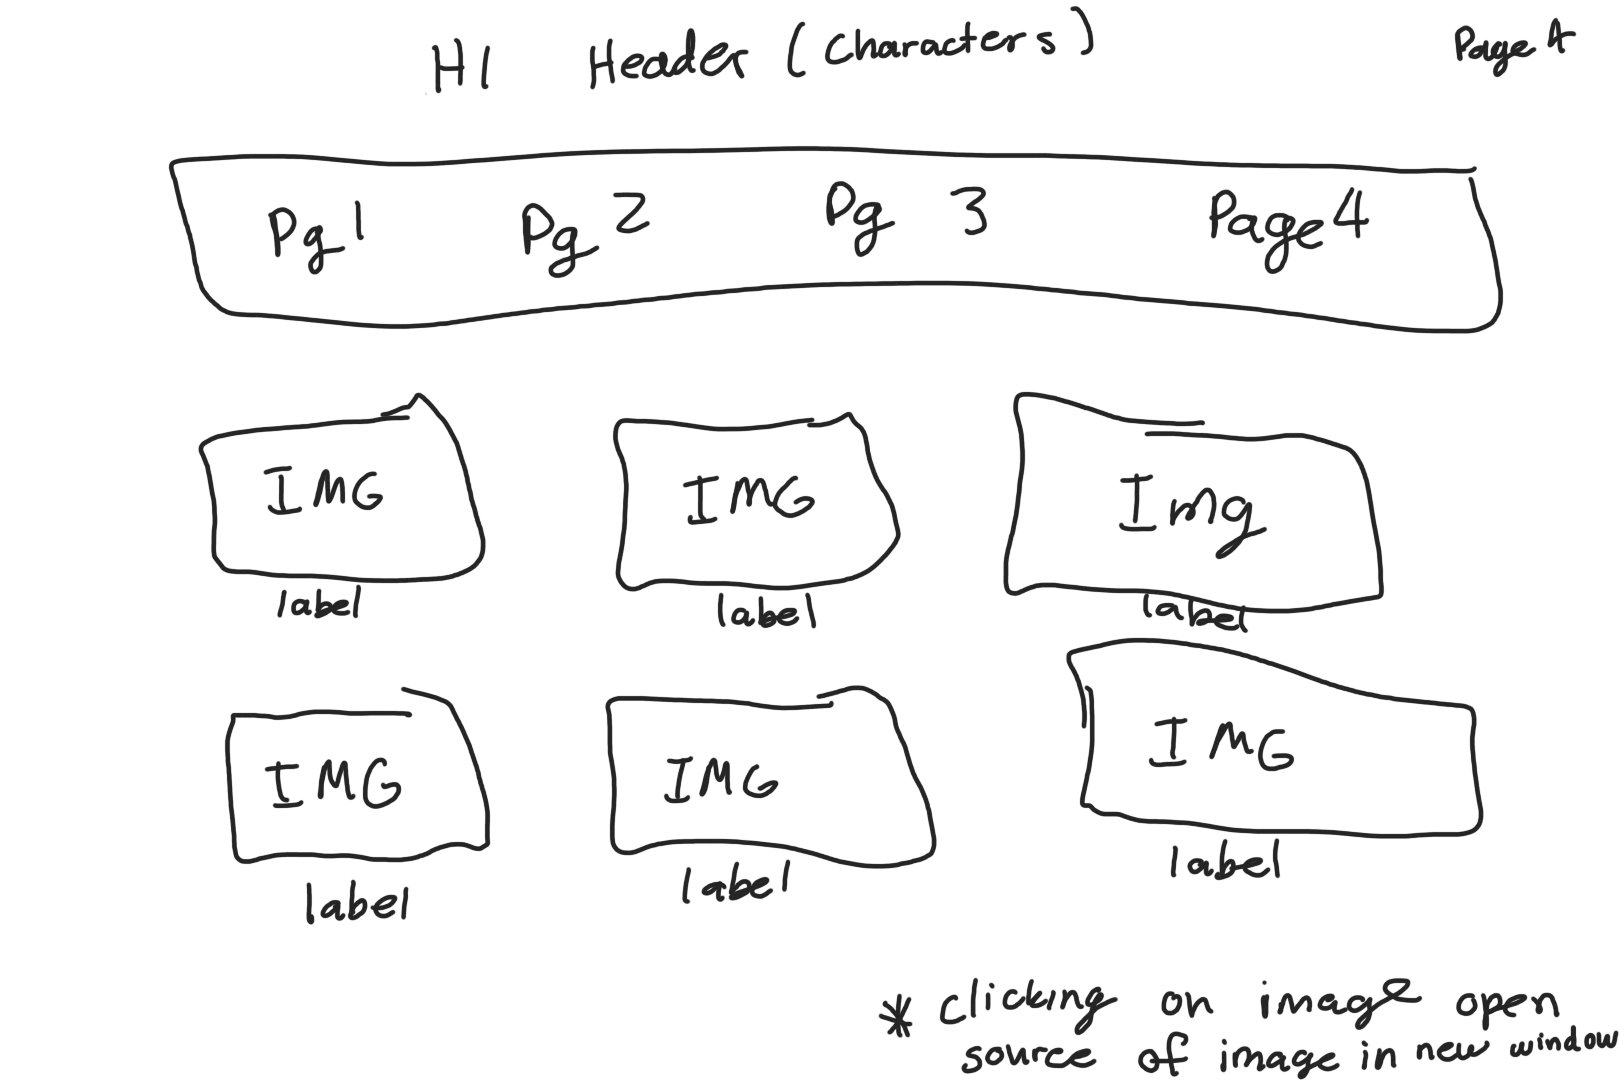 H1 Header (Characters)
Page 4
Pg 1 Pg 2 Pg 3 Page 4
IMG IMG Img
label label label
IMG IMG IMG
label label label
* clicking on image open
source of image in new window